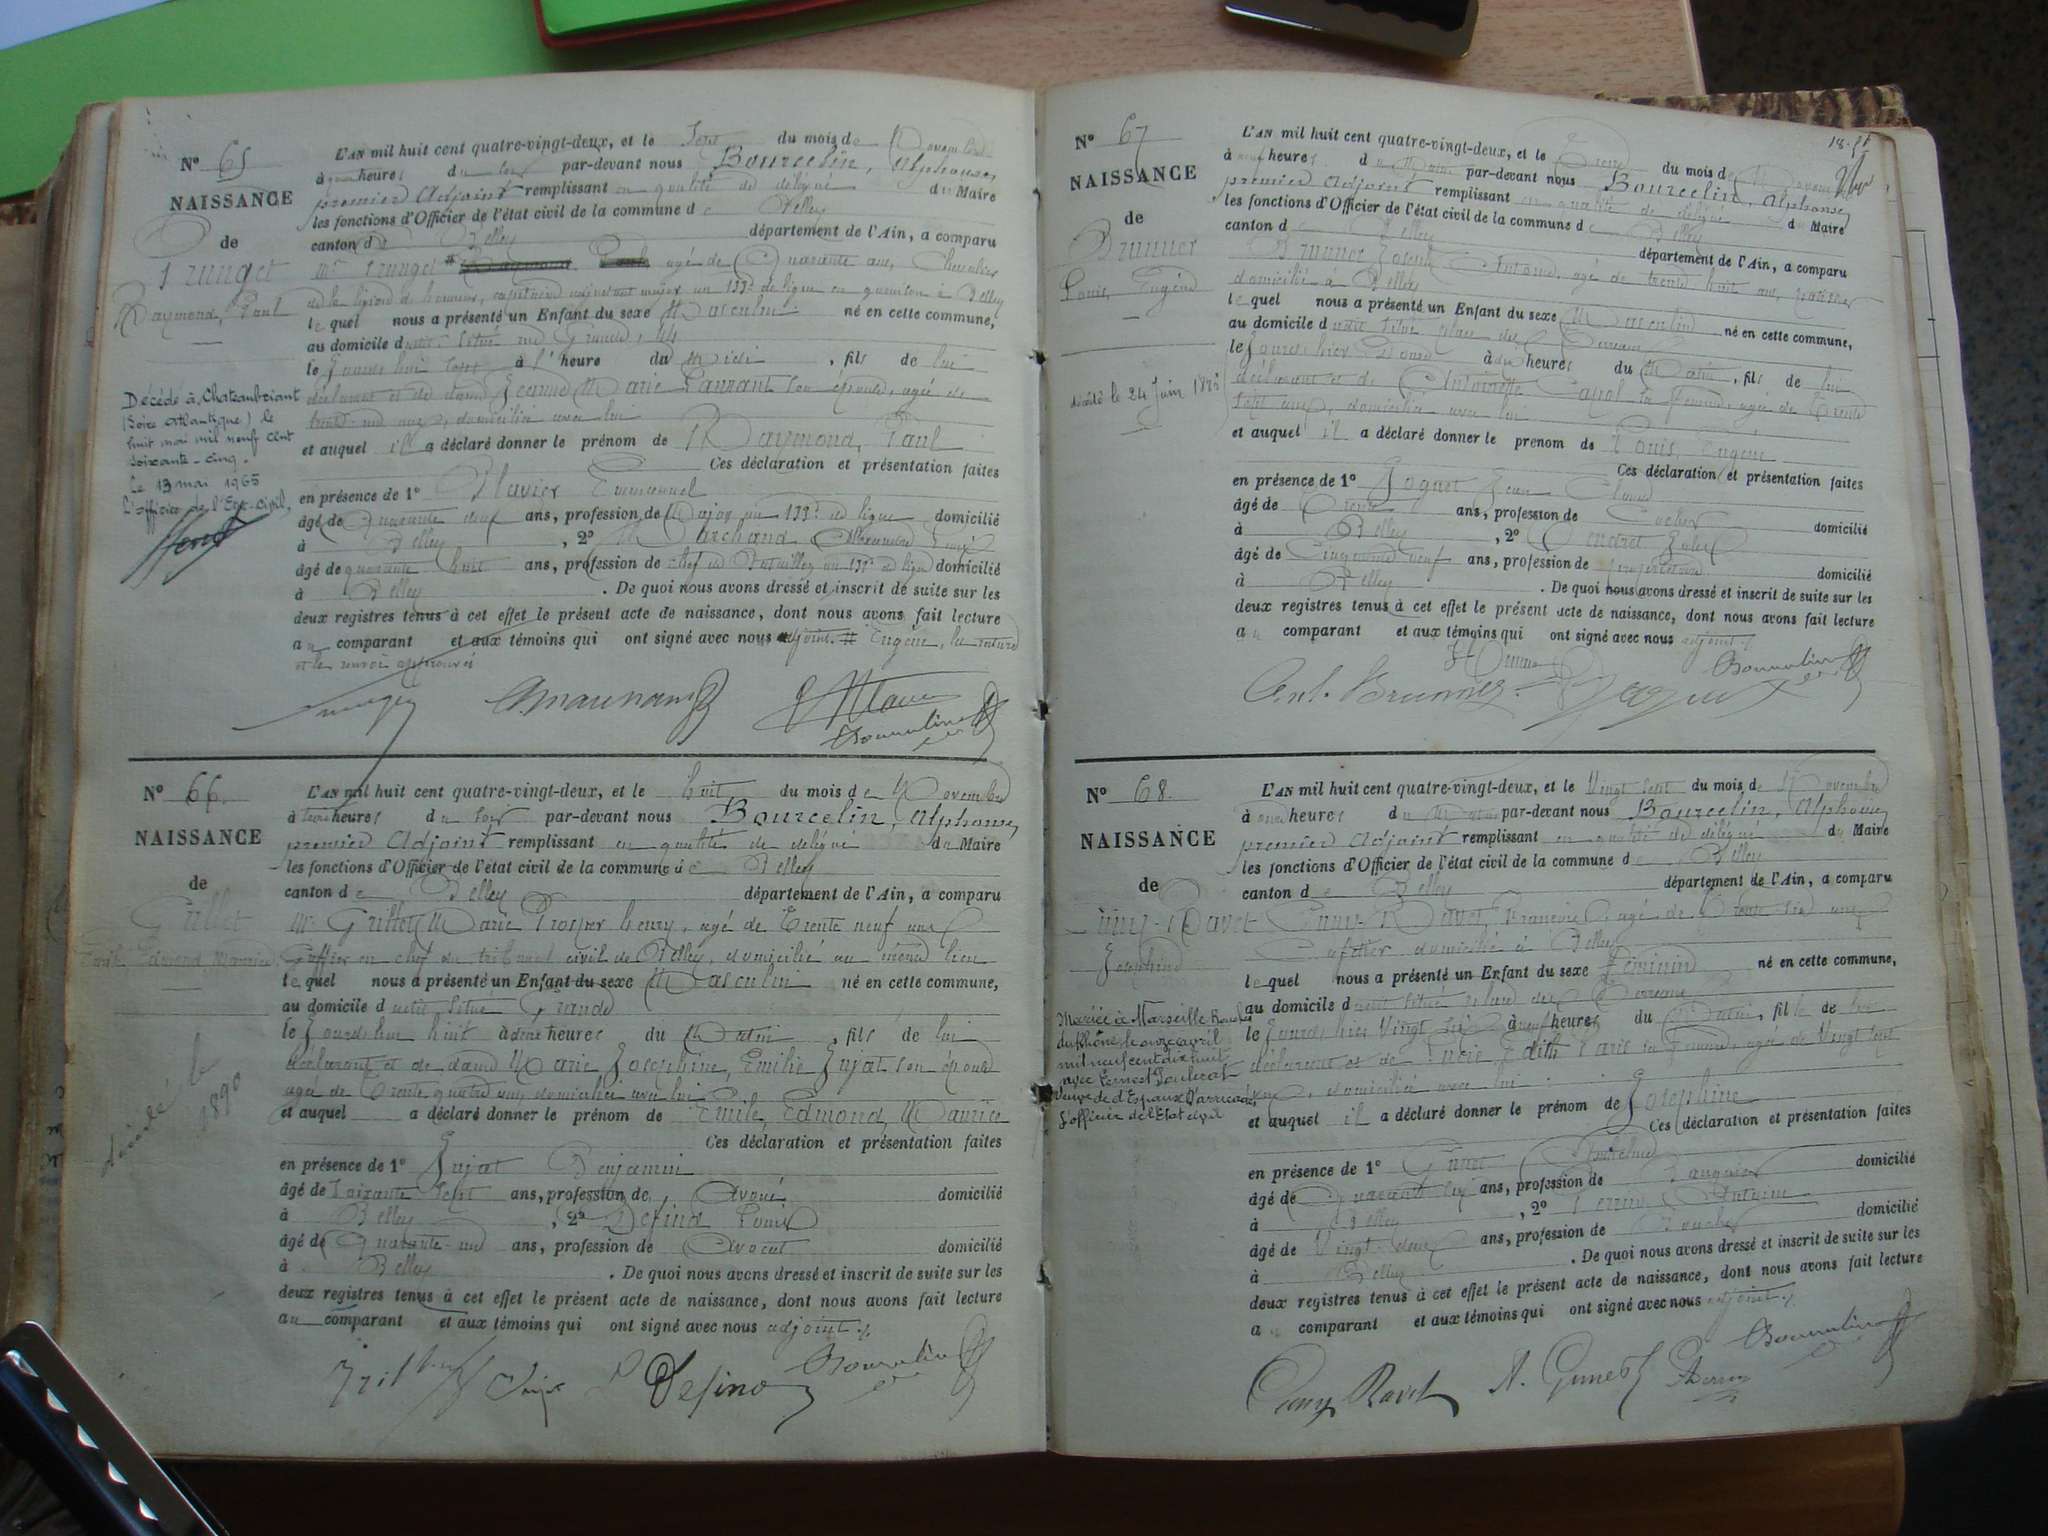 N° 65
NAISSANCE
de
Prunget
Raymond, Paul
Décédé à Chateaubriant
(Loire Atlantique) le
huit mai mil neuf cent
soixante-cinq.
Le 13 mai 1965
L'officier de l'Etat-civil,
L'AN mil huit cent quatre-vingt-deux, et le Sept du mois de Novembre
à heures du soir par-devant nous Bourcelin, Alphonse,
premier Adjoint remplissant en qualité de délégué du Maire
les fonctions d'Officier de l'état civil de la commune de Belley
canton de Belley département de l'Ain, a comparu
Mr Prunget # agé de Quarante ans, Chevalier
de la légion d'honneur, capitaine adjudant major au 133e de ligne en garnison à Belley
lequel nous a présenté un Enfant du sexe Masculin né en cette commune,
au domicile d situé rue Grande,
le Jourd'hui sept à l' heure du Midi , fils de lui
déclarant et de dame Jeanne Marie Laurant son épouse, agée de
trente-un ans, domiciliée avec lui
et auquel il a déclaré donner le prénom de Raymond, Paul
Ces déclaration et présentation faites
en présence de 1° Mavier Emmanuel
âgé de Quarante neuf ans, profession de Major au 133e de ligne domicilié
à Belley , 2° Marchand
âgé de quarante huit ans, profession de chef de Bataillon au 133e de ligne domicilié
à Belley . De quoi nous avons dressé et inscrit de suite sur les
deux registres tenus à cet effet le présent acte de naissance, dont nous avons fait lecture
au comparant et aux témoins qui ont signé avec nous adjoint. # Eugène, la rature
et le renvoi approuvés
N° 66.
NAISSANCE
de
Grillet
Emile, Edmond, Maurice
décédé le
1890
L'AN mil huit cent quatre-vingt-deux, et le huit du mois de Novembre
à heures du soir par-devant nous Bourcelin, Alphonse,
premier Adjoint remplissant en qualité de délégué du Maire
les fonctions d'Officier de l'état civil de la commune de Belley
canton de Belley département de l'Ain, a comparu
Mr Grillet Marie Prosper henry, agé de Trente neuf ans
Greffier en chef du tribunal civil de Belley, domicilié au même lieu
lequel nous a présenté un Enfant du sexe Masculin né en cette commune,
au domicile d situé Grande
le Jourd'hui huit à heures du Matin , fils de lui
déclarant et de dame Marie Josephine, Emilie Jujat son épouse
agée de Trente quatre ans, domiciliée avec lui
et auquel a déclaré donner le prénom de Emile, Edmond, Maurice
Ces déclaration et présentation faites
en présence de 1° Jujat Benjamin
âgé de Soixante sept ans, profession de Avoué domicilié
à Belley , 2° Defina Louis
âgé de Quarante-un ans, profession de Avocat domicilié
à Belley . De quoi nous avons dressé et inscrit de suite sur les
deux registres tenus à cet effet le présent acte de naissance, dont nous avons fait lecture
au comparant et aux témoins qui ont signé avec nous adjoint.
N° 67
NAISSANCE
de
Brunier
Louis, Eugène
décédé le 24 Juin
L'AN mil huit cent quatre-vingt-deux, et le Treize du mois de Novembre
à neuf heures du Matin par-devant nous Bourcelin, Alphonse,
premier Adjoint remplissant en qualité de délégué du Maire
les fonctions d'Officier de l'état civil de la commune de Belley
canton de Belley département de l'Ain, a comparu
Brunier Joseph Antoine, agé de trente huit ans,
domicilié à Belley
lequel nous a présenté un Enfant du sexe Masculin né en cette commune,
au domicile d situé place des Terreaux
le Jour d'hier Douze à heures du Matin , fils de lui
déclarant et de Antoinette Cayol sa femme, agée de Trente
sept ans, domiciliée avec lui
et auquel il a déclaré donner le prenom de Louis, Eugène
Ces déclaration et présentation faites
en présence de 1° Joguet Jean Claude
âgé de Trente ans, profession de domicilié
à Belley , 2° Jules
âgé de Cinquante neuf ans, profession de domicilié
à Belley . De quoi nous avons dressé et inscrit de suite sur les
deux registres tenus à cet effet le présent acte de naissance, dont nous avons fait lecture
au comparant et aux témoins qui ont signé avec nous adjoint.
Ant. Brunier
N° 68.
NAISSANCE
de
Cuny-Ravet
Josephine
Mariée à Marseille Bouches
du Rhône le onze avril
mil neuf cent dix huit
avec Ernest
veuve de
L'officier de l'Etat civil
L'AN mil huit cent quatre-vingt-deux, et le Vingt sept du mois de Novembre
à onze heures du Matin par-devant nous Bourcelin, Alphonse,
premier Adjoint remplissant en qualité de délégué du Maire
les fonctions d'Officier de l'état civil de la commune de Belley
canton de Belley département de l'Ain, a comparu
Cuny-Ravet, François, agé de Trente six ans
Cafetier domicilié à Belley
lequel nous a présenté un Enfant du sexe Féminin né en cette commune,
au domicile d situé place des Terreaux
le Jour d'hier Vingt six à neuf heures du Matin, fille de lui
déclarant et de Edith Paris sa femme, agée de Vingt sept
ans, domiciliée avec lui
et auquel il a déclaré donner le prénom de Josephine
Ces déclaration et présentation faites
en présence de 1° Gunet Anthelme
âgé de Quarante six ans, profession de Banquier domicilié
à Belley , 2° Perrin Antoine
âgé de Vingt-deux ans, profession de domicilié
à Belley . De quoi nous avons dressé et inscrit de suite sur les
deux registres tenus à cet effet le présent acte de naissance, dont nous avons fait lecture
au comparant et aux témoins qui ont signé avec nous adjoint.
Cuny Ravet A. Gunet